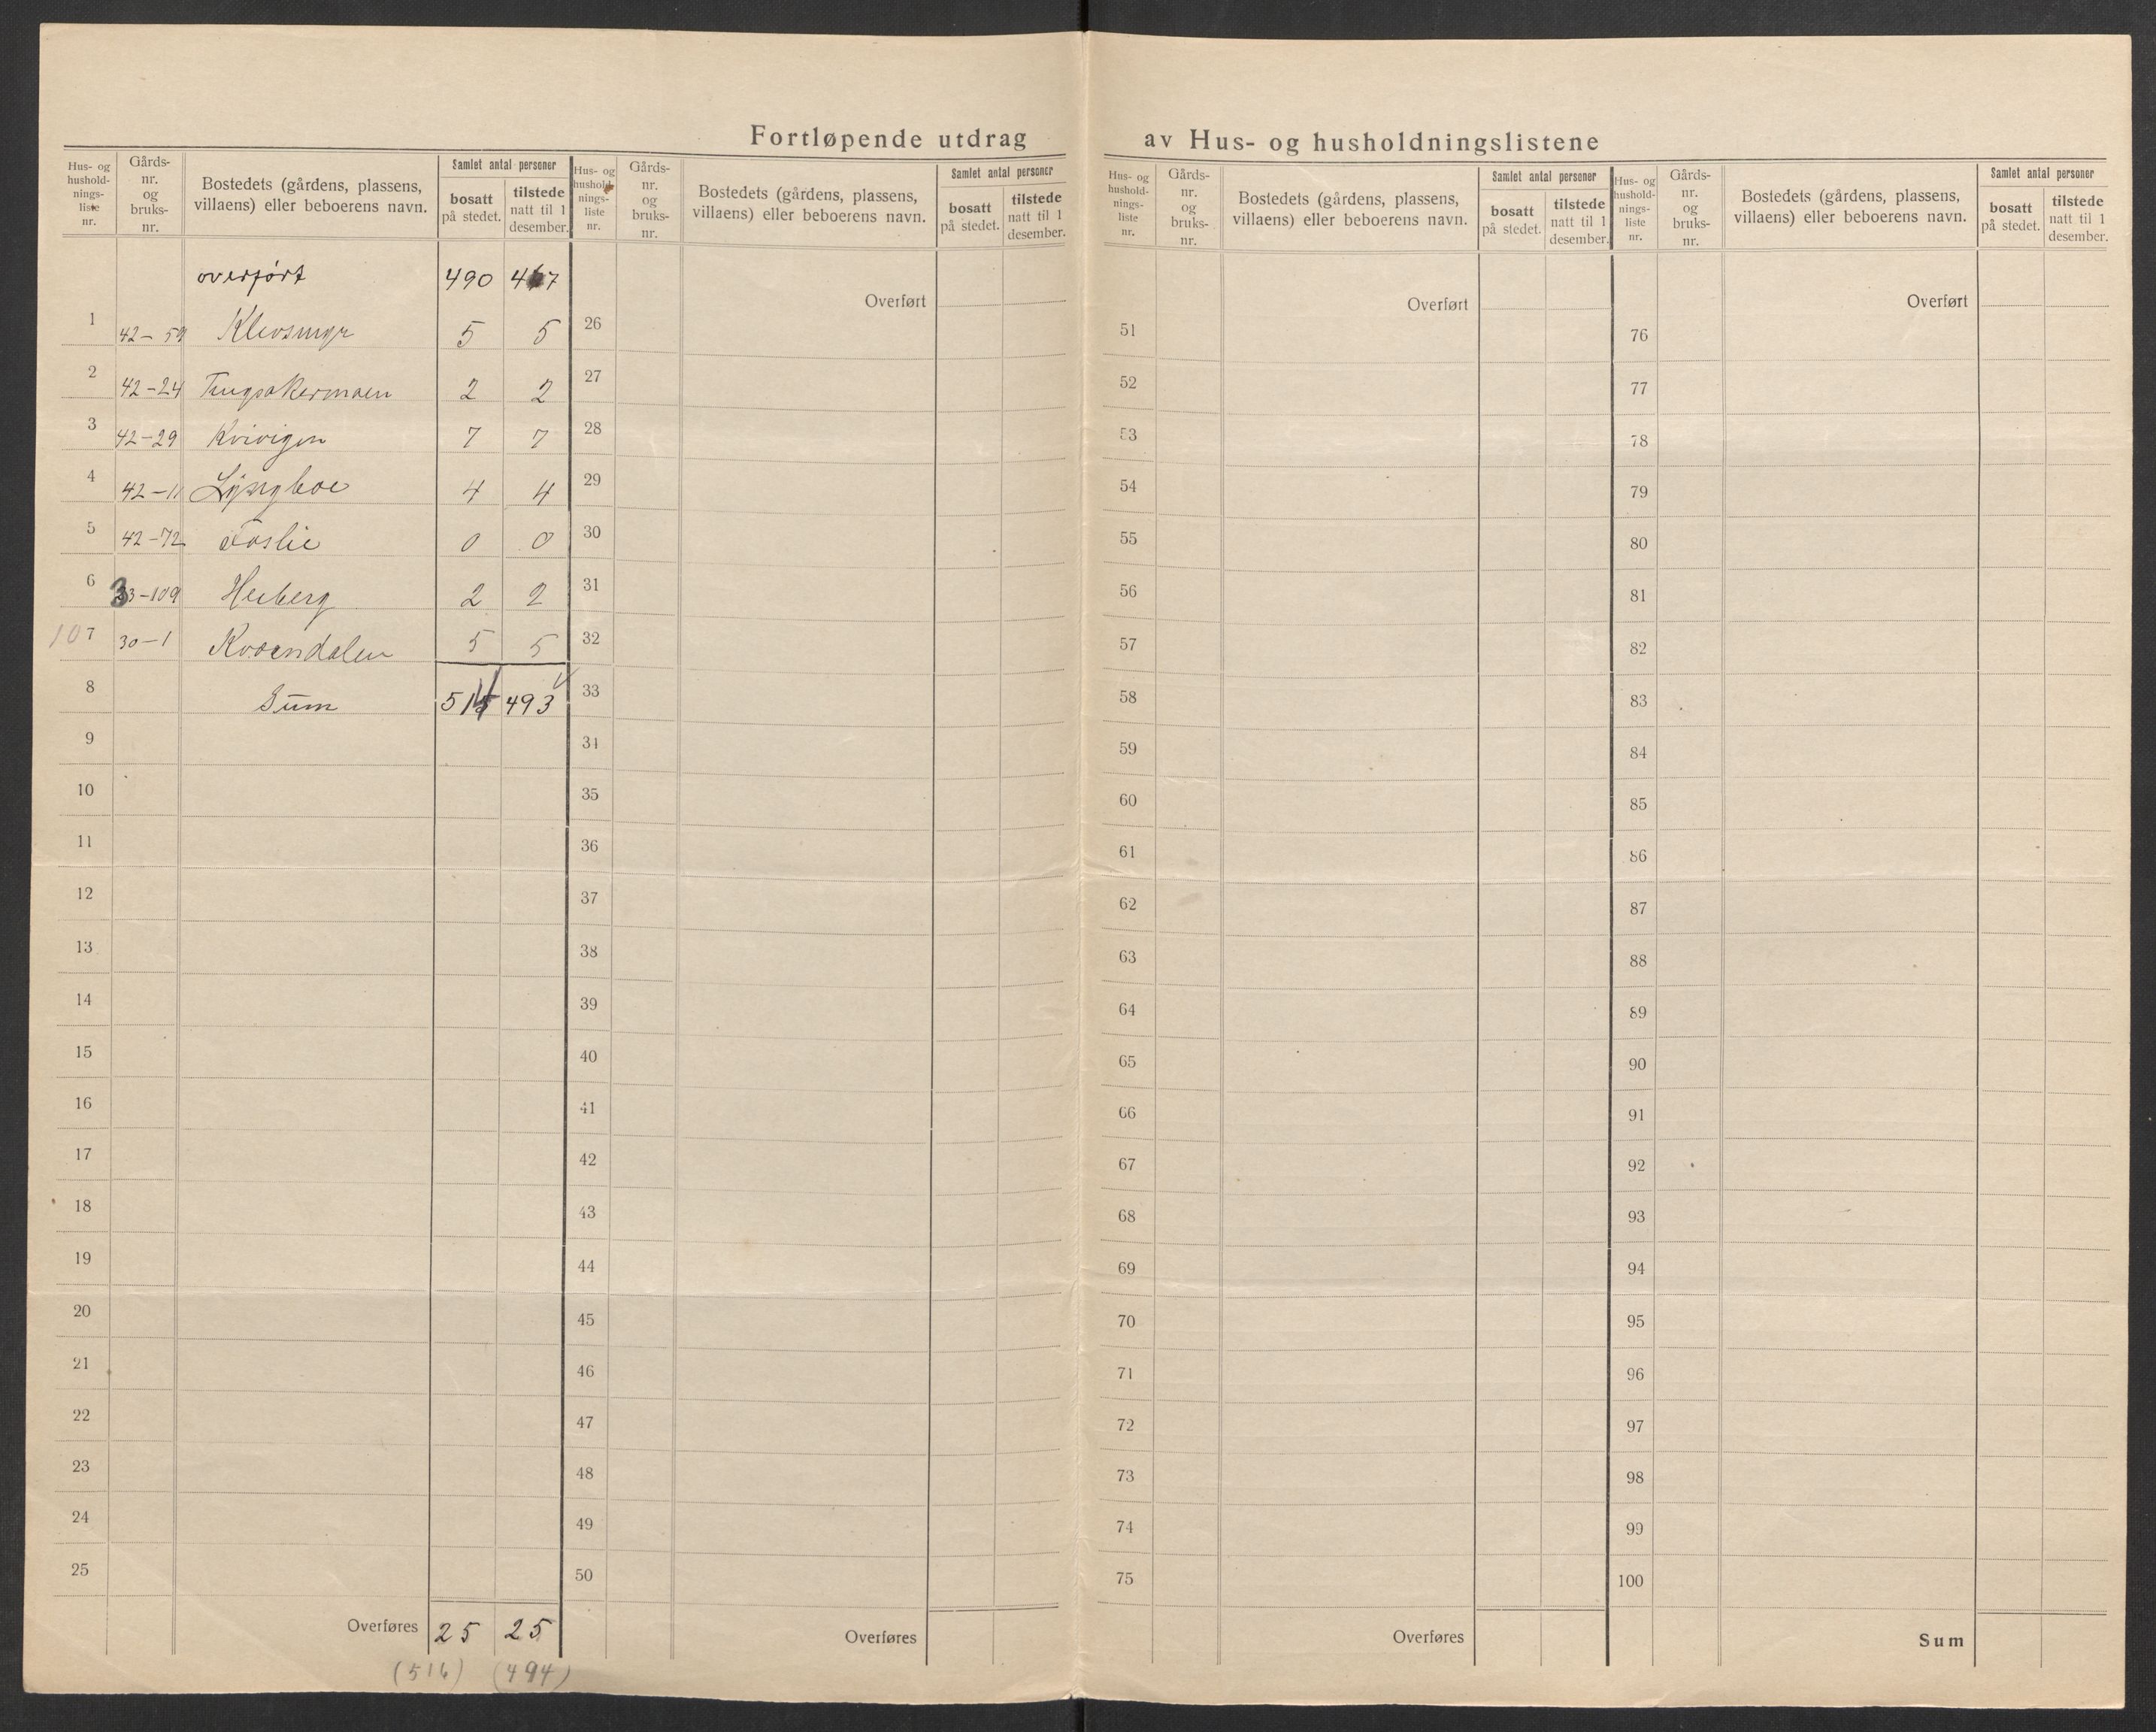 Fortløpende utdrag av Hus- og husholdningslistene
Hus- og hushold-nings-liste nr. | Gårds-nr. og bruks-nr. | Bostedets (gårdens, plassens, villaens) eller beboerens navn. | Samlet antal personer | bosatt på stedet. | tilstede natt til 1 desember.
overført 490
1 42-59 5 5
2 42-24 2 2
3 42-29 Kvivigen 7 7
4 42-11 Lyngboe 4 4
5 42-72 0 0
6 Heiberg 2 2
10 7 30-1 Kvaendalen 5 5
8 Sum 493
9
10
11
12
13
14
15
16
17
18
19
20
21
22
23
24
25
Overføres 25 25
(516) (494)
Hus- og hushold-nings-liste nr. | Gårds-nr. og bruks-nr. | Bostedets (gårdens, plassens, villaens) eller beboerens navn. | Samlet antal personer | bosatt på stedet. | tilstede natt til 1 desember.
Overført
26
27
28
29
30
31
32
33
34
35
36
37
38
39
40
41
42
43
44
45
46
47
48
49
50
Overføres
Hus- og hushold-nings-liste nr. | Gårds-nr. og bruks-nr. | Bostedets (gårdens, plassens, villaens) eller beboerens navn. | Samlet antal personer | bosatt på stedet. | tilstede natt til 1 desember.
Overført
51
52
53
54
55
56
57
58
59
60
61
62
63
64
65
66
67
68
69
70
71
72
73
74
75
Overføres
Hus- og hushold-nings-liste nr. | Gårds-nr. og bruks-nr. | Bostedets (gårdens, plassens, villaens) eller beboerens navn. | Samlet antal personer | bosatt på stedet. | tilstede natt til 1 desember.
Overført
76
77
78
79
80
81
82
83
84
85
86
87
88
89
90
91
92
93
94
95
96
97
98
99
100
Sum